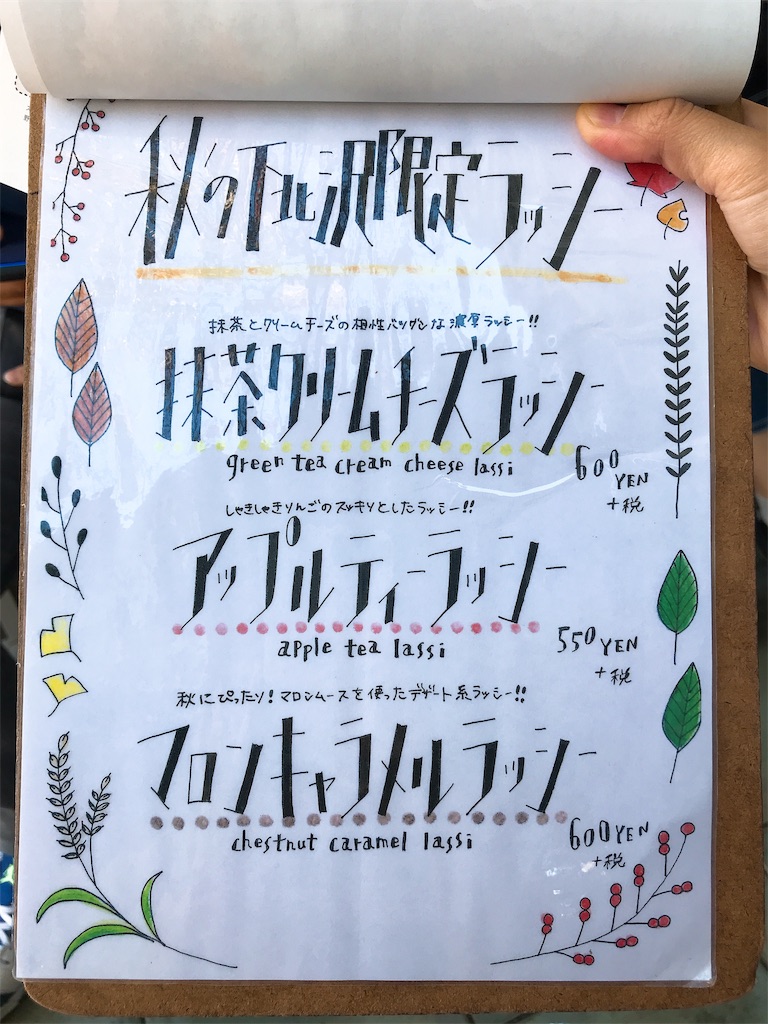 秋の下北沢限定ラッシー
抹茶とクリームチーズの相性バツグンな濃厚ラッシー!!
抹茶クリームチーズラッシー
green tea cream cheese lassi
600 YEN
+税
しゃきしゃきりんごのスッキリとしたラッシー!!
アップルティーラッシー
apple tea lassi
550 YEN
+税
秋にぴったり!マロンムースを使ったデザート系ラッシー!!
マロンキャラメルラッシー
chestnut caramel lassi
600 YEN
+税